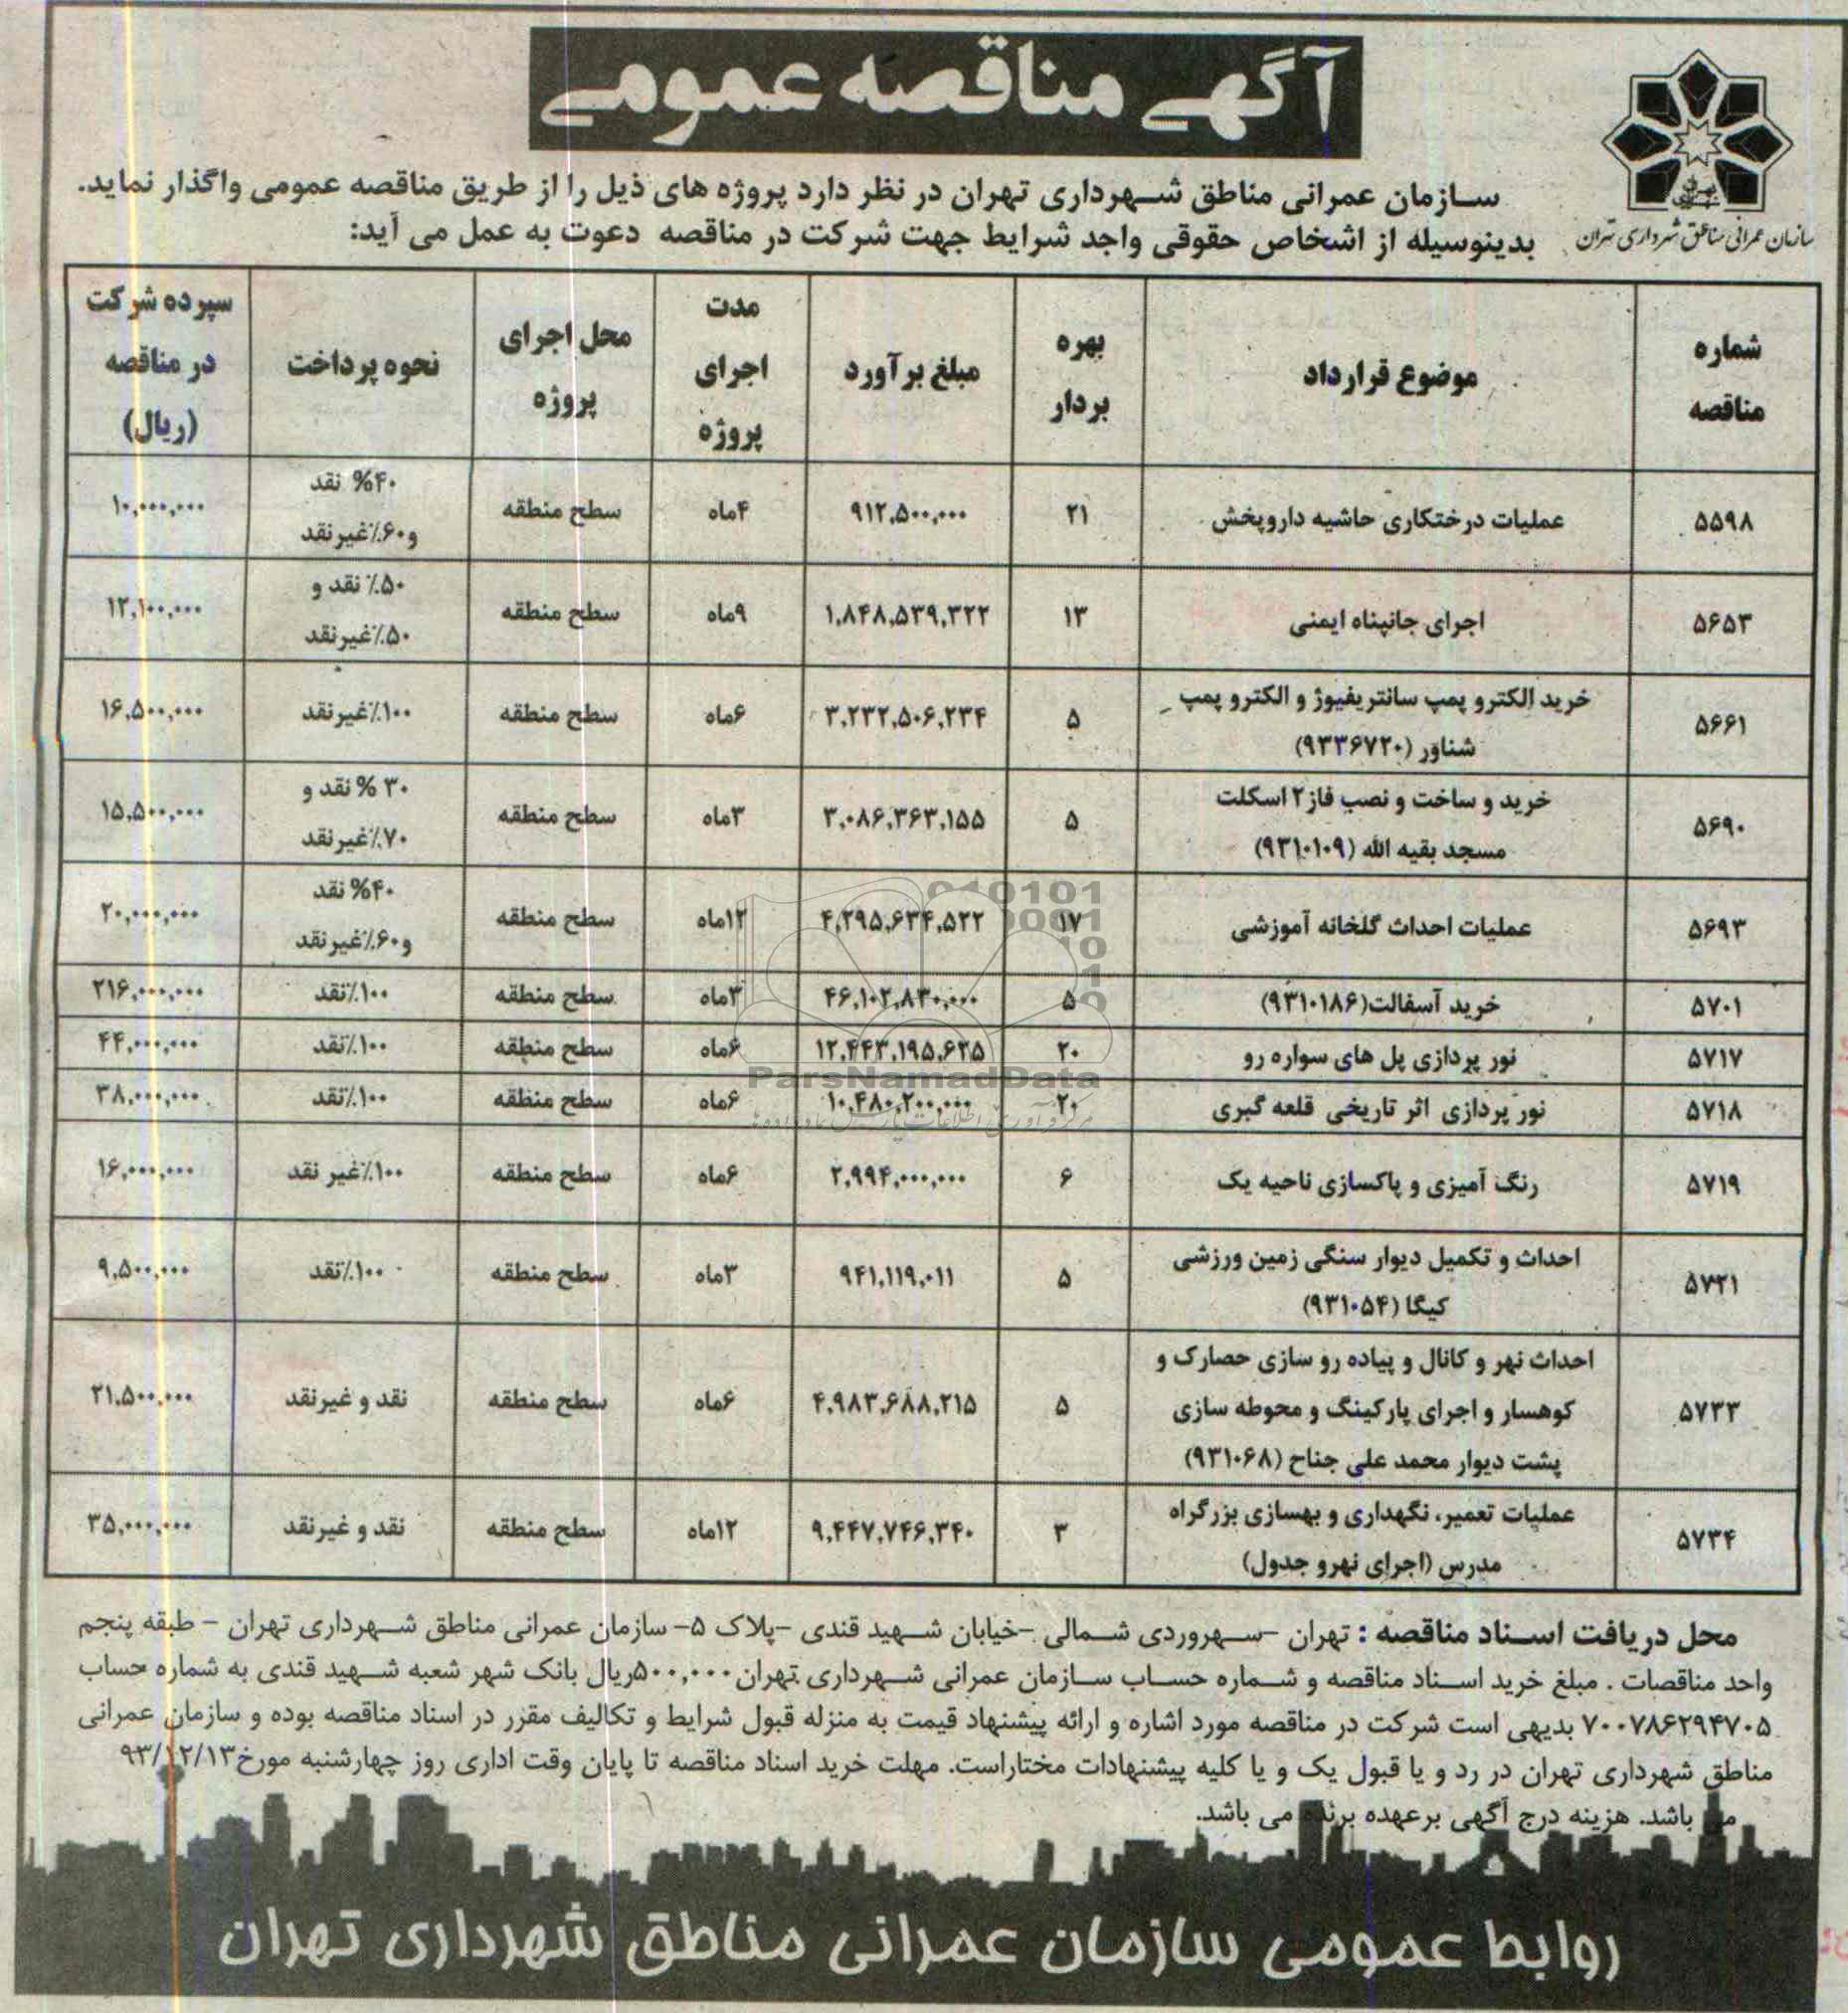 آگهی مناقصه عمومی
سازمان عمرانی مناطق شهرداری تهران
سازمان عمرانی مناطق شهرداری تهران در نظر دارد پروژه های ذیل را از طریق مناقصه عمومی واگذار نماید.
بدینوسیله از اشخاص حقوقی واجد شرایط جهت شرکت در مناقصه دعوت به عمل می آید:
شماره مناقصه | موضوع قرارداد | بهره بردار | مبلغ برآورد | مدت اجرای پروژه | محل اجرای پروژه | نحوه پرداخت | سپرده شرکت در مناقصه (ریال)
۵۵۹۸ | عملیات درختکاری حاشیه داروپخش | ۲۱ | ۹۱۲,۵۰۰,۰۰۰ | ۴ماه | سطح منطقه | ۴۰% نقد و۶۰٪غیرنقد | ۱۰,۰۰۰,۰۰۰
۵۶۵۳ | اجرای جانپناه ایمنی | ۱۳ | ۱,۸۴۸,۵۳۹,۳۲۲ | ۹ماه | سطح منطقه | ۵۰٪ نقد و ۵۰٪غیرنقد | ۱۲,۱۰۰,۰۰۰
۵۶۶۱ | خرید الکترو پمپ سانتریفیوژ و الکترو پمپ شناور (۹۳۳۶۷۲۰) | ۵ | ۳,۲۳۲,۵۰۶,۲۳۴ | ۶ماه | سطح منطقه | ۱۰۰٪غیرنقد | ۱۶,۵۰۰,۰۰۰
۵۶۹۰ | خرید و ساخت و نصب فاز۲ اسکلت مسجد بقیه الله (۹۳۱۰۱۰۹) | ۵ | ۳,۰۸۶,۳۶۳,۱۵۵ | ۳ماه | سطح منطقه | ۳۰ % نقد و ۷۰٪غیرنقد | ۱۵,۵۰۰,۰۰۰
۵۶۹۳ | عملیات احداث گلخانه آموزشی | ۱۷ | ۴,۲۹۵,۶۳۴,۵۲۲ | ۱۲ماه | سطح منطقه | ۴۰% نقد و۶۰٪غیرنقد | ۲۰,۰۰۰,۰۰۰
۵۷۰۱ | خرید آسفالت(۹۳۱۰۱۸۶) | ۵ | ۴۶,۱۰۲,۸۳۰,۰۰۰ | ۳ماه | سطح منطقه | ۱۰۰٪نقد | ۲۱۶,۰۰۰,۰۰۰
۵۷۱۷ | نور پردازی پل های سواره رو | ۲۰ | ۱۲,۴۴۳,۱۹۵,۶۲۵ | ۶ماه | سطح منطقه | ۱۰۰٪نقد | ۴۴,۰۰۰,۰۰۰
۵۷۱۸ | نور پردازی اثر تاریخی قلعه گبری | ۲۰ | ۱۰,۴۸۰,۲۰۰,۰۰۰ | ۶ماه | سطح منطقه | ۱۰۰٪نقد | ۳۸,۰۰۰,۰۰۰
۵۷۱۹ | رنگ آمیزی و پاکسازی ناحیه یک | ۶ | ۲,۹۹۴,۰۰۰,۰۰۰ | ۶ماه | سطح منطقه | ۱۰۰٪غیر نقد | ۱۶,۰۰۰,۰۰۰
۵۷۲۱ | احداث و تکمیل دیوار سنگی زمین ورزشی کیگا (۹۳۱۰۵۴) | ۵ | ۹۴۱,۱۱۹,۰۱۱ | ۳ماه | سطح منطقه | ۱۰۰٪نقد | ۹,۵۰۰,۰۰۰
۵۷۳۳ | احداث نهر و کانال و پیاده رو سازی حصارک و کوهسار و اجرای پارکینگ و محوطه سازی پشت دیوار محمد علی جناح (۹۳۱۰۶۸) | ۵ | ۴,۹۸۳,۶۸۸,۲۱۵ | ۶ماه | سطح منطقه | نقد و غیرنقد | ۲۱,۵۰۰,۰۰۰
۵۷۳۴ | عملیات تعمیر، نگهداری و بهسازی بزرگراه مدرس (اجرای نهرو جدول) | ۳ | ۹,۴۴۷,۷۴۶,۳۴۰ | ۱۲ماه | سطح منطقه | نقد و غیرنقد | ۳۵,۰۰۰,۰۰۰
ParsNamadData
محل دریافت اسناد مناقصه : تهران -سهروردی شمالی -خیابان شهید قندی -پلاک ۵- سازمان عمرانی مناطق شهرداری تهران - طبقه پنجم
واحد مناقصات . مبلغ خرید اسناد مناقصه و شماره حساب سازمان عمرانی شهرداری تهران ۵۰۰,۰۰۰ریال بانک شهر شعبه شهید قندی به شماره حساب
۷۰۰۷۸۶۲۹۴۷۰۵ بدیهی است شرکت در مناقصه مورد اشاره و ارائه پیشنهاد قیمت به منزله قبول شرایط و تکالیف مقرر در اسناد مناقصه بوده و سازمان عمرانی
مناطق شهرداری تهران در رد و یا قبول یک و یا کلیه پیشنهادات مختاراست. مهلت خرید اسناد مناقصه تا پایان وقت اداری روز چهارشنبه مورخ۹۳/۱۲/۱۳
می باشد. هزینه درج آگهی برعهده برنده می باشد.
روابط عمومی سازمان عمرانی مناطق شهرداری تهران